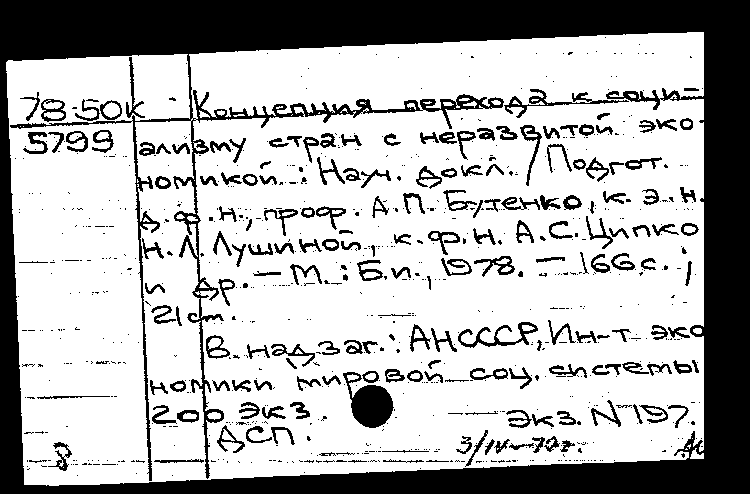 78-50К Концепция перехода к соци-
5799 ализму стран с неразвитой эко-
номикой : Науч. докл. / Подгот.
д.ф.н., проф. А.П. Бутенко, к.э.н.
Н.Л. Лушиной, к.ф.н. А.С. Ципко
и др. — М. : Б.и., 1978. — 166 с. ;
21 cm.
В надзаг.: АНСССР, Ин-т эко
номики мировой соц. системы
200 экз. экз. N 197.
ДСП.
8 3/IV-79г.